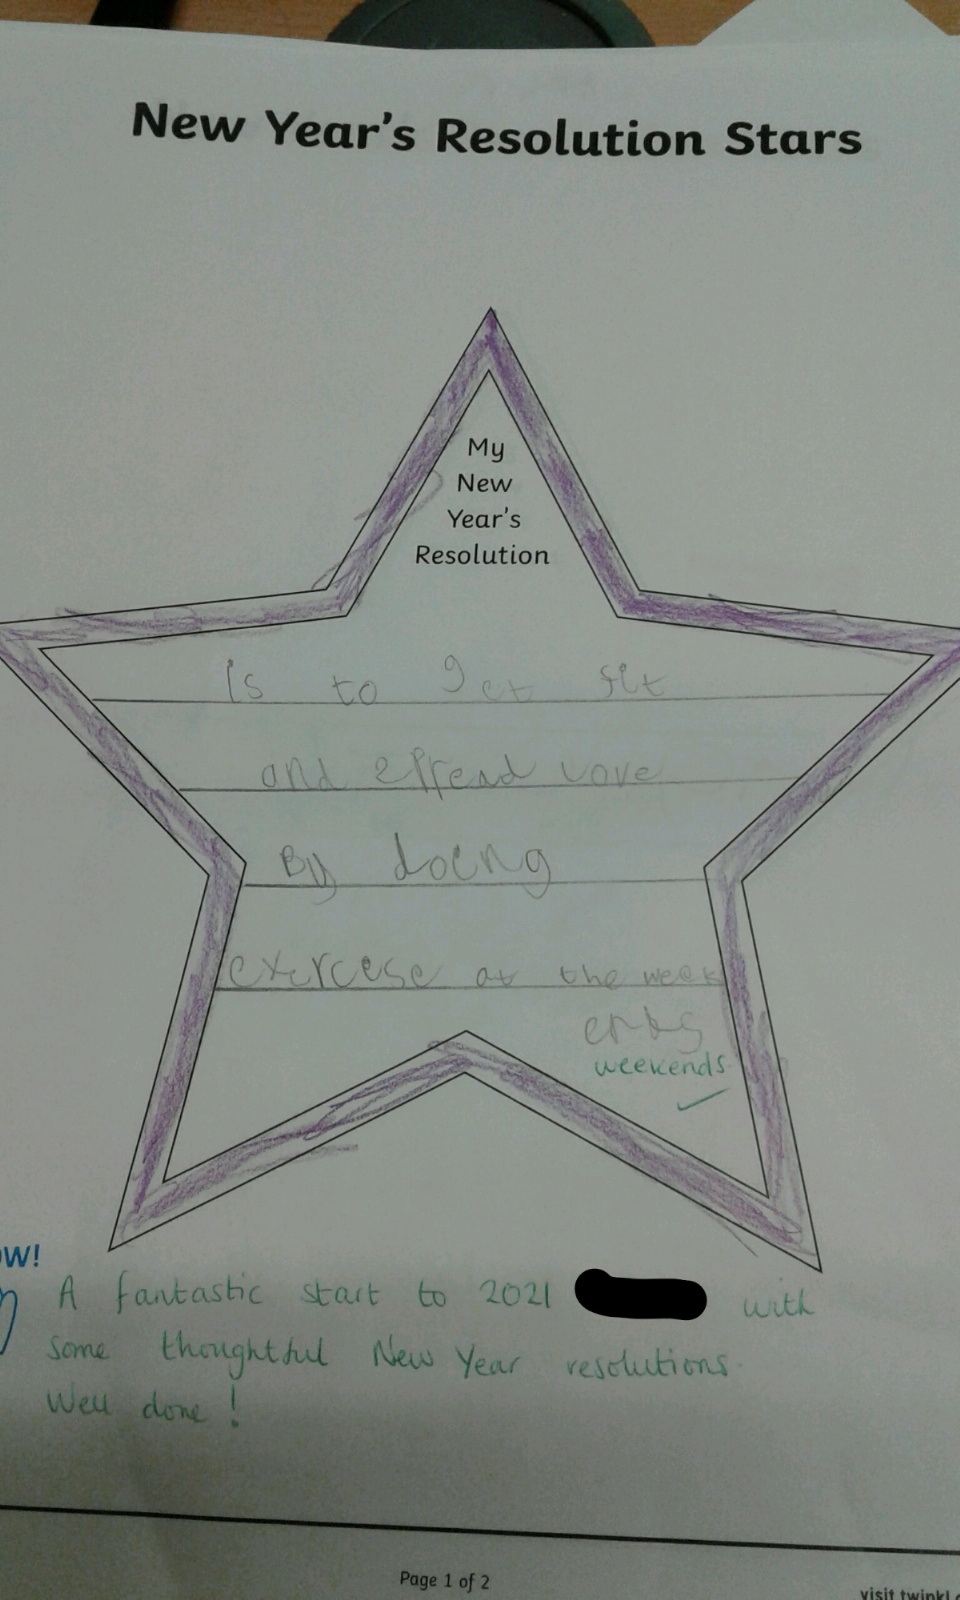 New Year's Resolution Stars
My
New
Year's
Resolution
is to get fit
and spread love
By doing
exercese at the week
ends
weekends
OW!
A fantastic start to 2021 with
some thoughtful New Year resolutions.
Well done!
Page 1 of 2
visit twinkl.